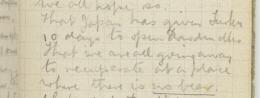 we all hope so.
That Japan has given Turkey
10 days to open Dardanelles
That we are all going away
to recuperate at a place
where there is no beer.